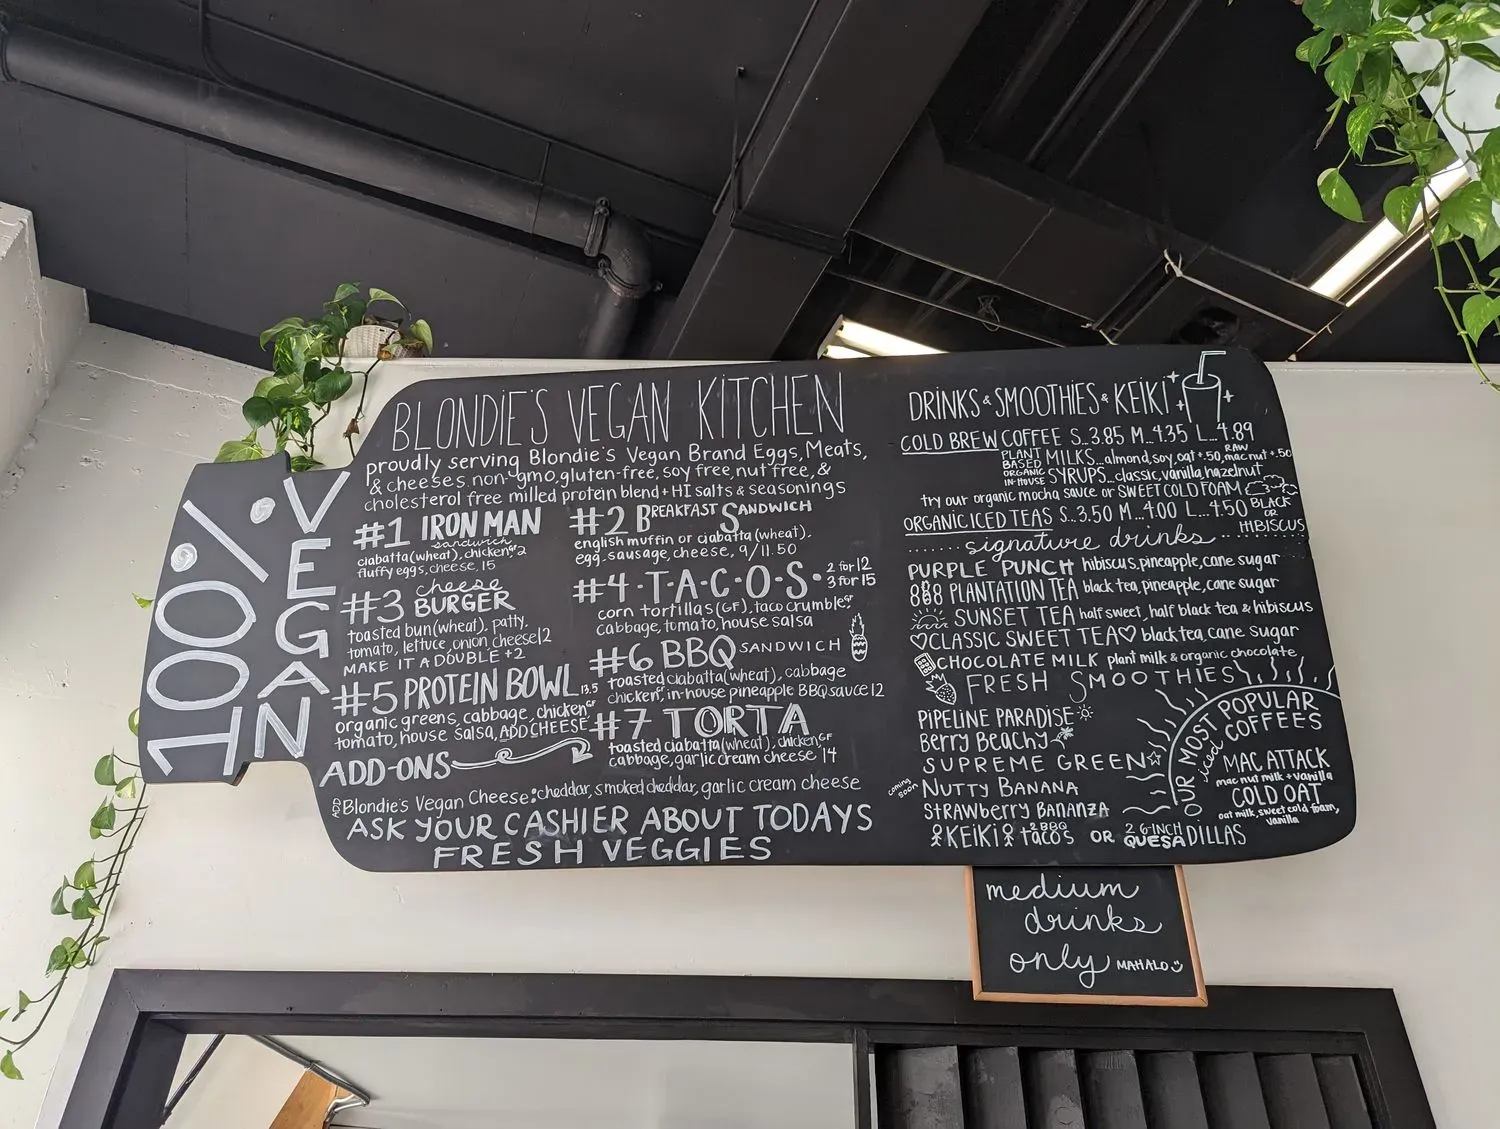 100% VEGAN
BLONDIE'S VEGAN KITCHEN
proudly serving Blondie's Vegan Brand Eggs, Meats,
& cheeses. non-gmo, gluten-free, soy free, nut free, &
cholesterol free milled protein blend + HI salts & seasonings
#1 IRON MAN
sandwich
ciabatta (wheat), chicken GF 2
fluffy eggs, cheese, 15
#2 BREAKFAST SANDWICH
english muffin or ciabatta (wheat).
egg, sausage, cheese, 9/11.50
#3 cheese BURGER
toasted bun (wheat), patty,
tomato, lettuce, onion cheese 12
MAKE IT A DOUBLE +2
#4 T-A-C-O-S. 2 for 12
3 for 15
corn tortillas (GF), taco crumble GF
cabbage, tomato, house salsa
#5 PROTEIN BOWL 13.5
organic greens, cabbage, chicken GF
tomato, house salsa, ADD CHEESE
#6 BBQ SANDWICH
toasted ciabatta (wheat), cabbage
chicken GF, in-house pineapple BBQ sauce 12
#7 TORTA
toasted ciabatta (wheat), chicken GF
cabbage, garlic cream cheese 14
ADD-ONS
ADD Blondie's Vegan Cheese: cheddar, smoked cheddar, garlic cream cheese
ASK YOUR CASHIER ABOUT TODAYS
FRESH VEGGIES
DRINKS & SMOOTHIES & KEIKI
COLD BREW COFFEE S...3.85 M...4.35 L...4.89
PLANT BASED MILKS... almond, soy, oat +.50, RAW mac nut +.50
ORGANIC IN-HOUSE SYRUPS... classic, vanilla, hazelnut
try our organic mocha sauce or SWEET COLD FOAM
ORGANIC ICED TEAS S...3.50 M...4.00 L...4.50 BLACK OR HIBISCUS
signature drinks
PURPLE PUNCH hibiscus, pineapple, cane sugar
PLANTATION TEA black tea, pineapple, cane sugar
SUNSET TEA half sweet, half black tea & hibiscus
CLASSIC SWEET TEA black tea, cane sugar
CHOCOLATE MILK plant milk & organic chocolate
FRESH SMOOTHIES
PIPELINE PARADISE
Berry Beachy
SUPREME GREEN
coming soon NUTTY BANANA
STRAWBERRY BANANZA
KEIKI 2 BBQ tacos OR 2 6-INCH QUESADILLAS
OUR MOST POPULAR
iced COFFEES
MAC ATTACK
mac nut milk + vanilla
COLD OAT
oat milk, sweet cold foam,
vanilla
medium
drinks
only MAHALO